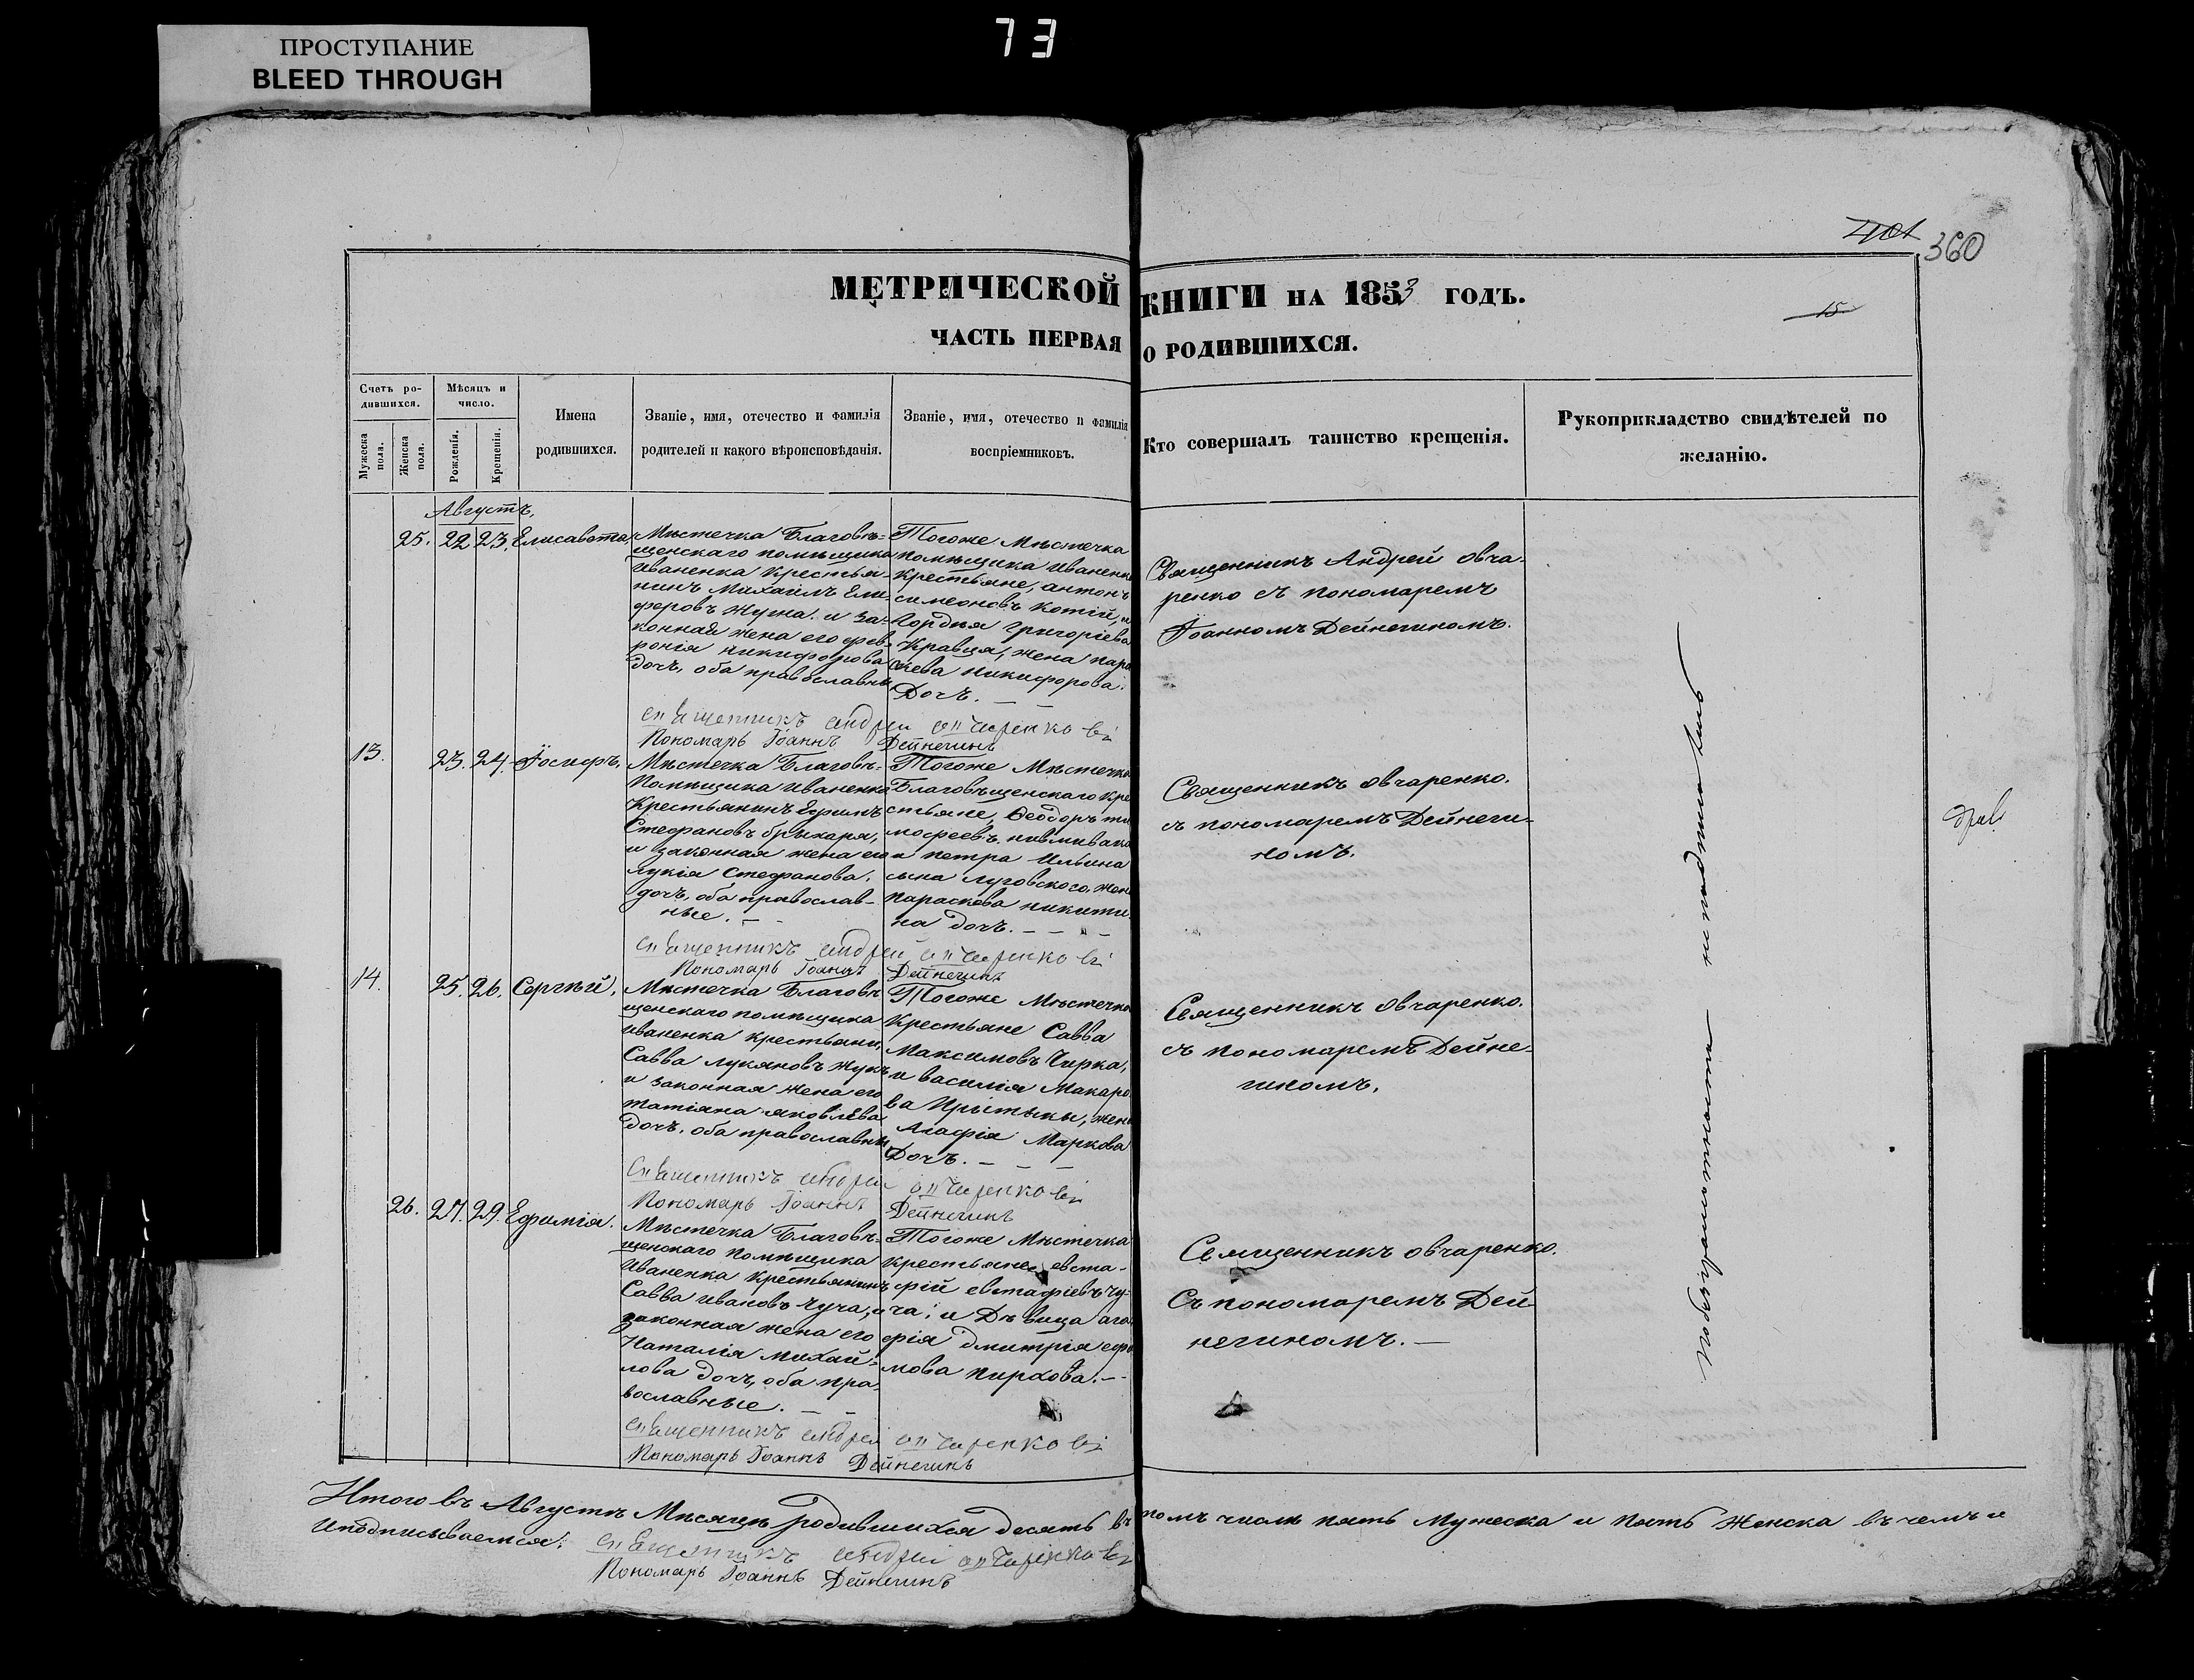 ПРОСТУПАНИЕ
BLEED THROUGH
73
401
360
МЕТРИЧЕСКОЙ КНИГИ НА 1853 ГОДЪ.
15
ЧАСТЬ ПЕРВАЯ О РОДИВШИХСЯ.
Счетъ ро-
дившихся.
Мужеска
пола.
Женска
пола.
Мѣсяцъ и
число.
Рожденія.
Крещенія.
Имена
родившихся.
Званіе, имя, отечество и фамилія
родителей и какого вѣроисповѣданія.
Званіе, имя, отечество и фамилія
воспріемниковъ.
Кто совершалъ таинство крещенія.
Рукоприкладство свидѣтелей по
желанію.
Августъ,
25. 22 23. Елисавета,
Мѣстечка Благовѣ-
щенскаго помѣщика
Иваненка Крестья-
нинъ Михаилъ Ели-
феровъ Жужа. и за-
конная жена его фев-
ронія никифорова
дочь, оба православны
Тогоже Мѣстечка
помѣщика Иваненк
Крестьяне, антонъ
симеоновъ Котій, и
Гордѣя Григоріева
Кравца, жена пара
скева никифорова
Дочь. — —
Священникъ Андрей Овча-
ренко съ пономаремъ
Іоанномъ Дейнегиномъ.
священникъ андрей
Пономарь Іоаннъ Дейнегинъ
13. 23. 24. Іосифъ,
Мѣстечка Благовѣ-
Помѣщика Иваненка
Крестьянинъ Ефимъ
Стефановъ
и законная жена его
лукія Стефанова,
дочь, оба православ-
ные. —
Тогоже Мѣстечка
Благовѣщенскаго Кре
стьяне, Ѳеодоръ ти
мофеевъ
и петра Ильина
сына Луговского, жен
параскева никити-
на дочь. — — —
Священникъ Овчаренко.
съ пономаремъ Дейнеги-
номъ.
священникъ андрей
Пономарь Іоаннъ Дейнегинъ
14. 25. 26. Сергѣй,
Мѣстечка Благовѣ
щенскаго помѣщика
Иваненка крестьяни,
Савва лукяновъ Жукъ
и законная жена его
татіяна яковлева
дочь. оба православны
Тогоже Мѣстечка
Крестьяне Савва
Максимовъ Чирка,
и василія Макаро
ва Притыки, жен
Агафія Маркова
Дочь. — — —
Священникъ Овчаренко.
съ пономаремъ Дейне-
гиномъ,
Священникъ андрей
Пономарь Іоаннъ Дейнегинъ
26. 27. 29. Ефимія.
Мѣстечка Благовѣ-
щенскаго помѣщика
Иваненка Крестьянинъ
Савва Ивановъ Чуча, и
законная жена его
Наталія михай-
лова дочь, оба пра-
вославные. — —
Тогоже Мѣстечка
крестьяне евста-
фій евстафіевъ Чу-
ча; и Дѣвица ага
фія дмитрія ефи
мова пирхова. —
Священникъ Овчаренко.
Съ пономаремъ Дей-
негиномъ. —
священникъ андрей
Пономарь Іоаннъ Дейнегинъ
Итого въ Августѣ Мѣсяцѣ родившихся десять въ томъ числѣ пять Мужеска и пять Женска въ чемъ и
иподписываемся:
священникъ андрей
Пономарь Іоаннъ Дейнегинъ